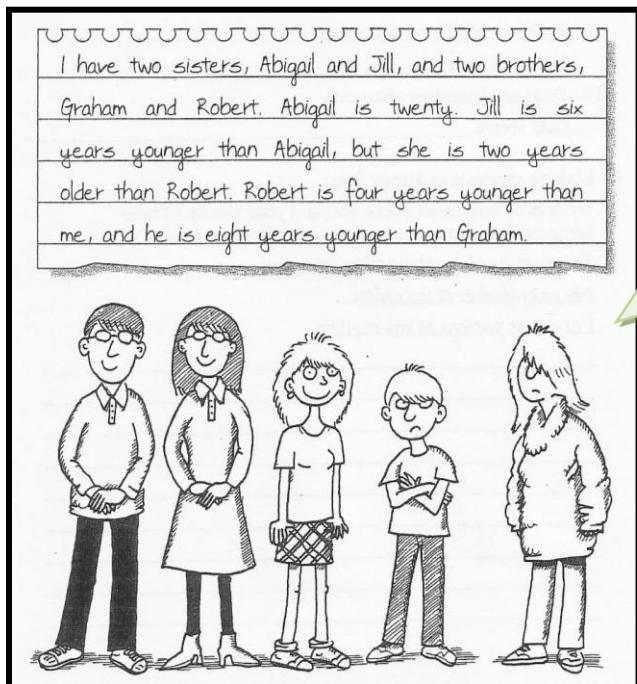 I have two sisters, Abigail and Jill, and two brothers,
Graham and Robert. Abigail is twenty. Jill is six
years younger than Abigail, but she is two years
older than Robert. Robert is four years younger than
me, and he is eight years younger than Graham.